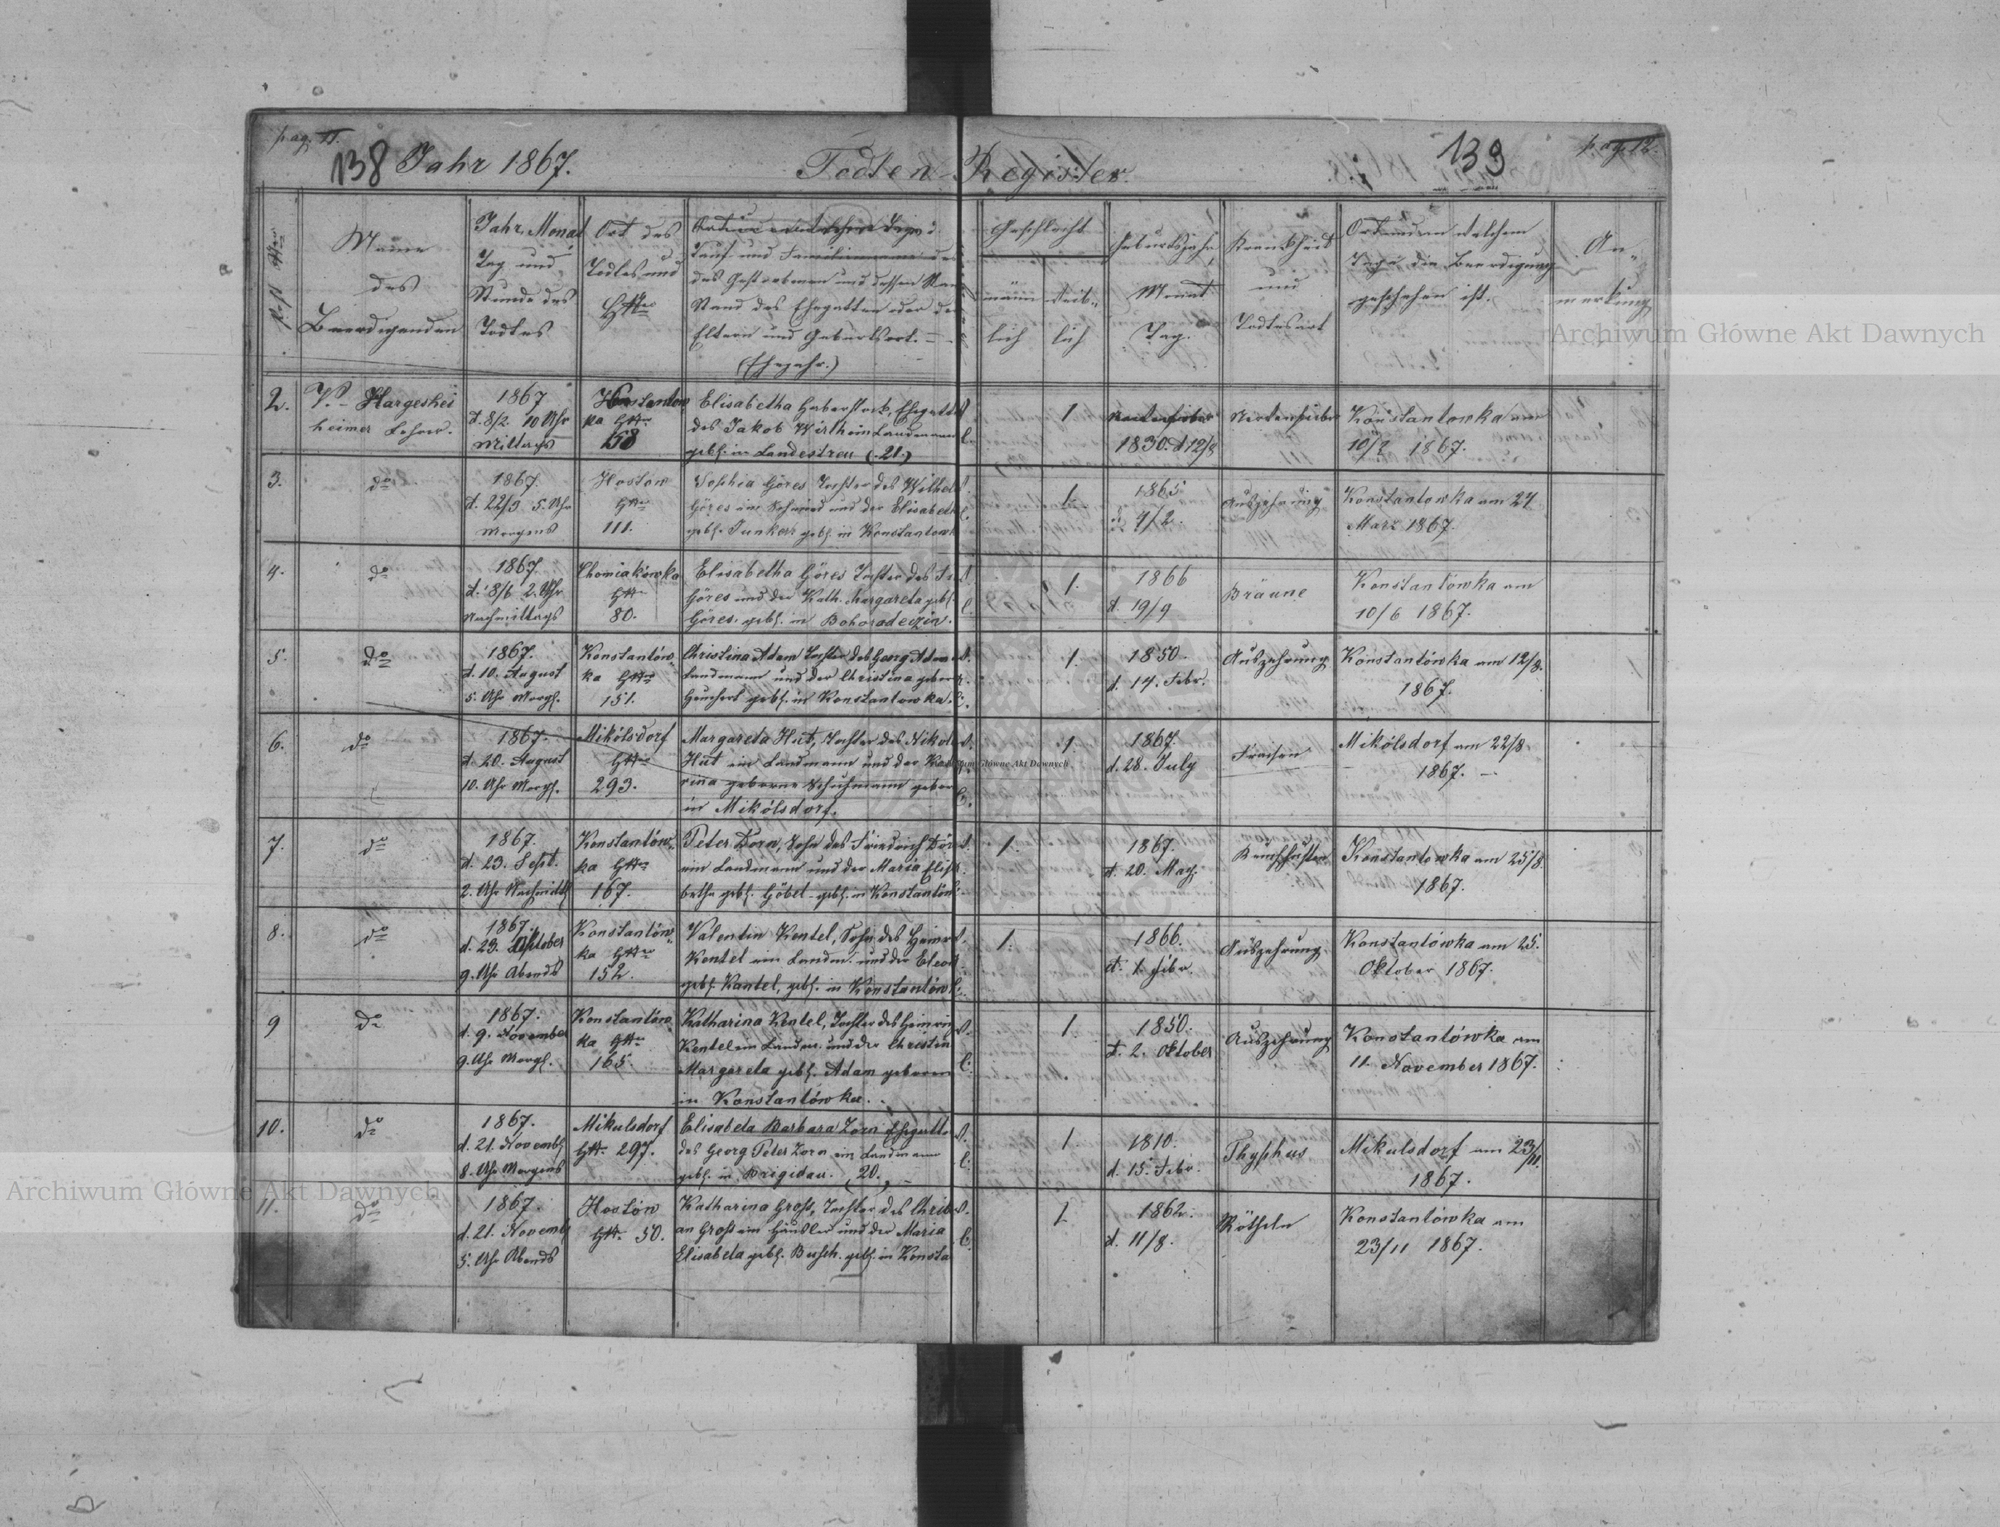 pag. 11.
138 Jahr 1867.
Todten-Register.
139
pag. 12.
Name
des
Beerdigenden
Jahr, Monat
Tag und
Stunde des
Todtes
Ort des
Todtes und
Tauf und Familienname
des Gestorbenen und dessen
Stand des Ehegatten oder der
Eltern und Geburtsort.
(Ehejahr.)
Geschlecht
männ-
lich
weib-
lich
Geburtsjahr,
Monat
Tag.
Krankheit
und
Todtesart
Ort und an welchem
Tage die Beerdigung
geschehen ist.
An-
merkung
2.
V. Hargeshei
heimer Lehrer.
1867
d. 8/2 10 Uhr
Mittags
Konstantow
ka
158
Elisabetha Haberstock, Ehegattin
des Jakob Wirth ein Landmann
geb. in Landestreu (21.)
1.
1830. d 12/8
Konstantowka am
10/2 1867.
3.
do
1867.
d. 22/3 5. Uhr
Morgens
Hostow
111.
Sophia Göres Tochter des Wilhelm
Göres ein Schmied und der Elisabeth
geb. Junker geb. in Konstantowk
1.
1865.
d. 4/2.
Auszehrung
Konstantowka am 24
Marz 1867.
4.
do
1867.
d. 8/6 2. Uhr
Nachmittags
Chomiakówka
80.
Elisabetha Göres Tochter des
Göres und der Kath. Margareta geb.
Göres. geb. in Bohorodeczin.
1.
1866
d. 19/9
Bräune
Konstantówka am
10/6 1867.
5.
do
1867.
d. 10. August
5. Uhr Morg.
Konstantów-
ka
151.
Christina Adam Tochter des Georg Adam
Landmann und der Christina geborn
geb. in Konstantowka.
1.
1850.
d. 14. Febr.
Auszehrung
Konstantówka am 12/8.
1867.
6.
do
1867.
d. 20. August
10. Uhr Morg.
Mikólsdorf
293.
Margareta Hut, Tochter des Nikol
Hut ein Landmann und der Kath
rina geborne Schuhmann geborn
in Mikólsdorf.
1.
1867.
d. 28. July
Fraisen
Mikólsdorf am 22/8
1867.
7.
do
1867.
d. 23. Sept.
2. Uhr Nachmitt.
Konstantów-
ka
167.
Peter Dorn, Sohn des Friedrich Dör
ein Landmann und der Maria Elisa
betha geb. Göbel geb. in Konstantów
1.
1867.
d. 20. May.
Keuchhusten
Konstantowka am 25/8.
1867.
8.
do
1867.
d. 23. Oktober
9. Uhr Abends
Konstantów-
ka
152.
Valentin Kentel, Sohn des Heinr
Kentel ein Landm. und der Eleon
geb. Kantel, geb. in Konstantów
1.
1866.
d. 1. Febr.
Auszehrung
Konstantówka am 25.
Oktober 1867.
9
do
1867.
d. 9. November
9. Uhr Morg.
Konstantów-
ka
165.
Katharina Kentel, Tochter des Heinrich
Kentel ein Landm. und der Christin
Margareta geb. Adam geboren
in Konstantówka.
1.
1850.
d. 2. Oktober
Auszehrung
Konstantówka am
11. November 1867.
10.
do
1867.
d. 21. Novemb.
8. Uhr Morgens
Mikulsdorf
297.
Elisabeta Barbara Zorn Ehegattin
des Georg Peter Zorn ein Landmann
geb. in Brigidau. (20.)
1
1810.
d. 15. Febr.
Thyphus
Mikulsdorf am 23/11.
1867.
11.
do
1867.
d. 21. Novemb
5. Uhr Abends
Hostów
50.
Katharina Groß, Tochter des Christi
an Groß ein Häusler und der Maria
Elisabeta geb. Busch. geb. in Konsta
1
1862.
d. 11/8.
Rötheln
Konstantówka am
23/11 1867.
Archiwum Główne Akt Dawnych
Archiwum Główne Akt Dawnych
Archiwum Główne Akt Dawnych